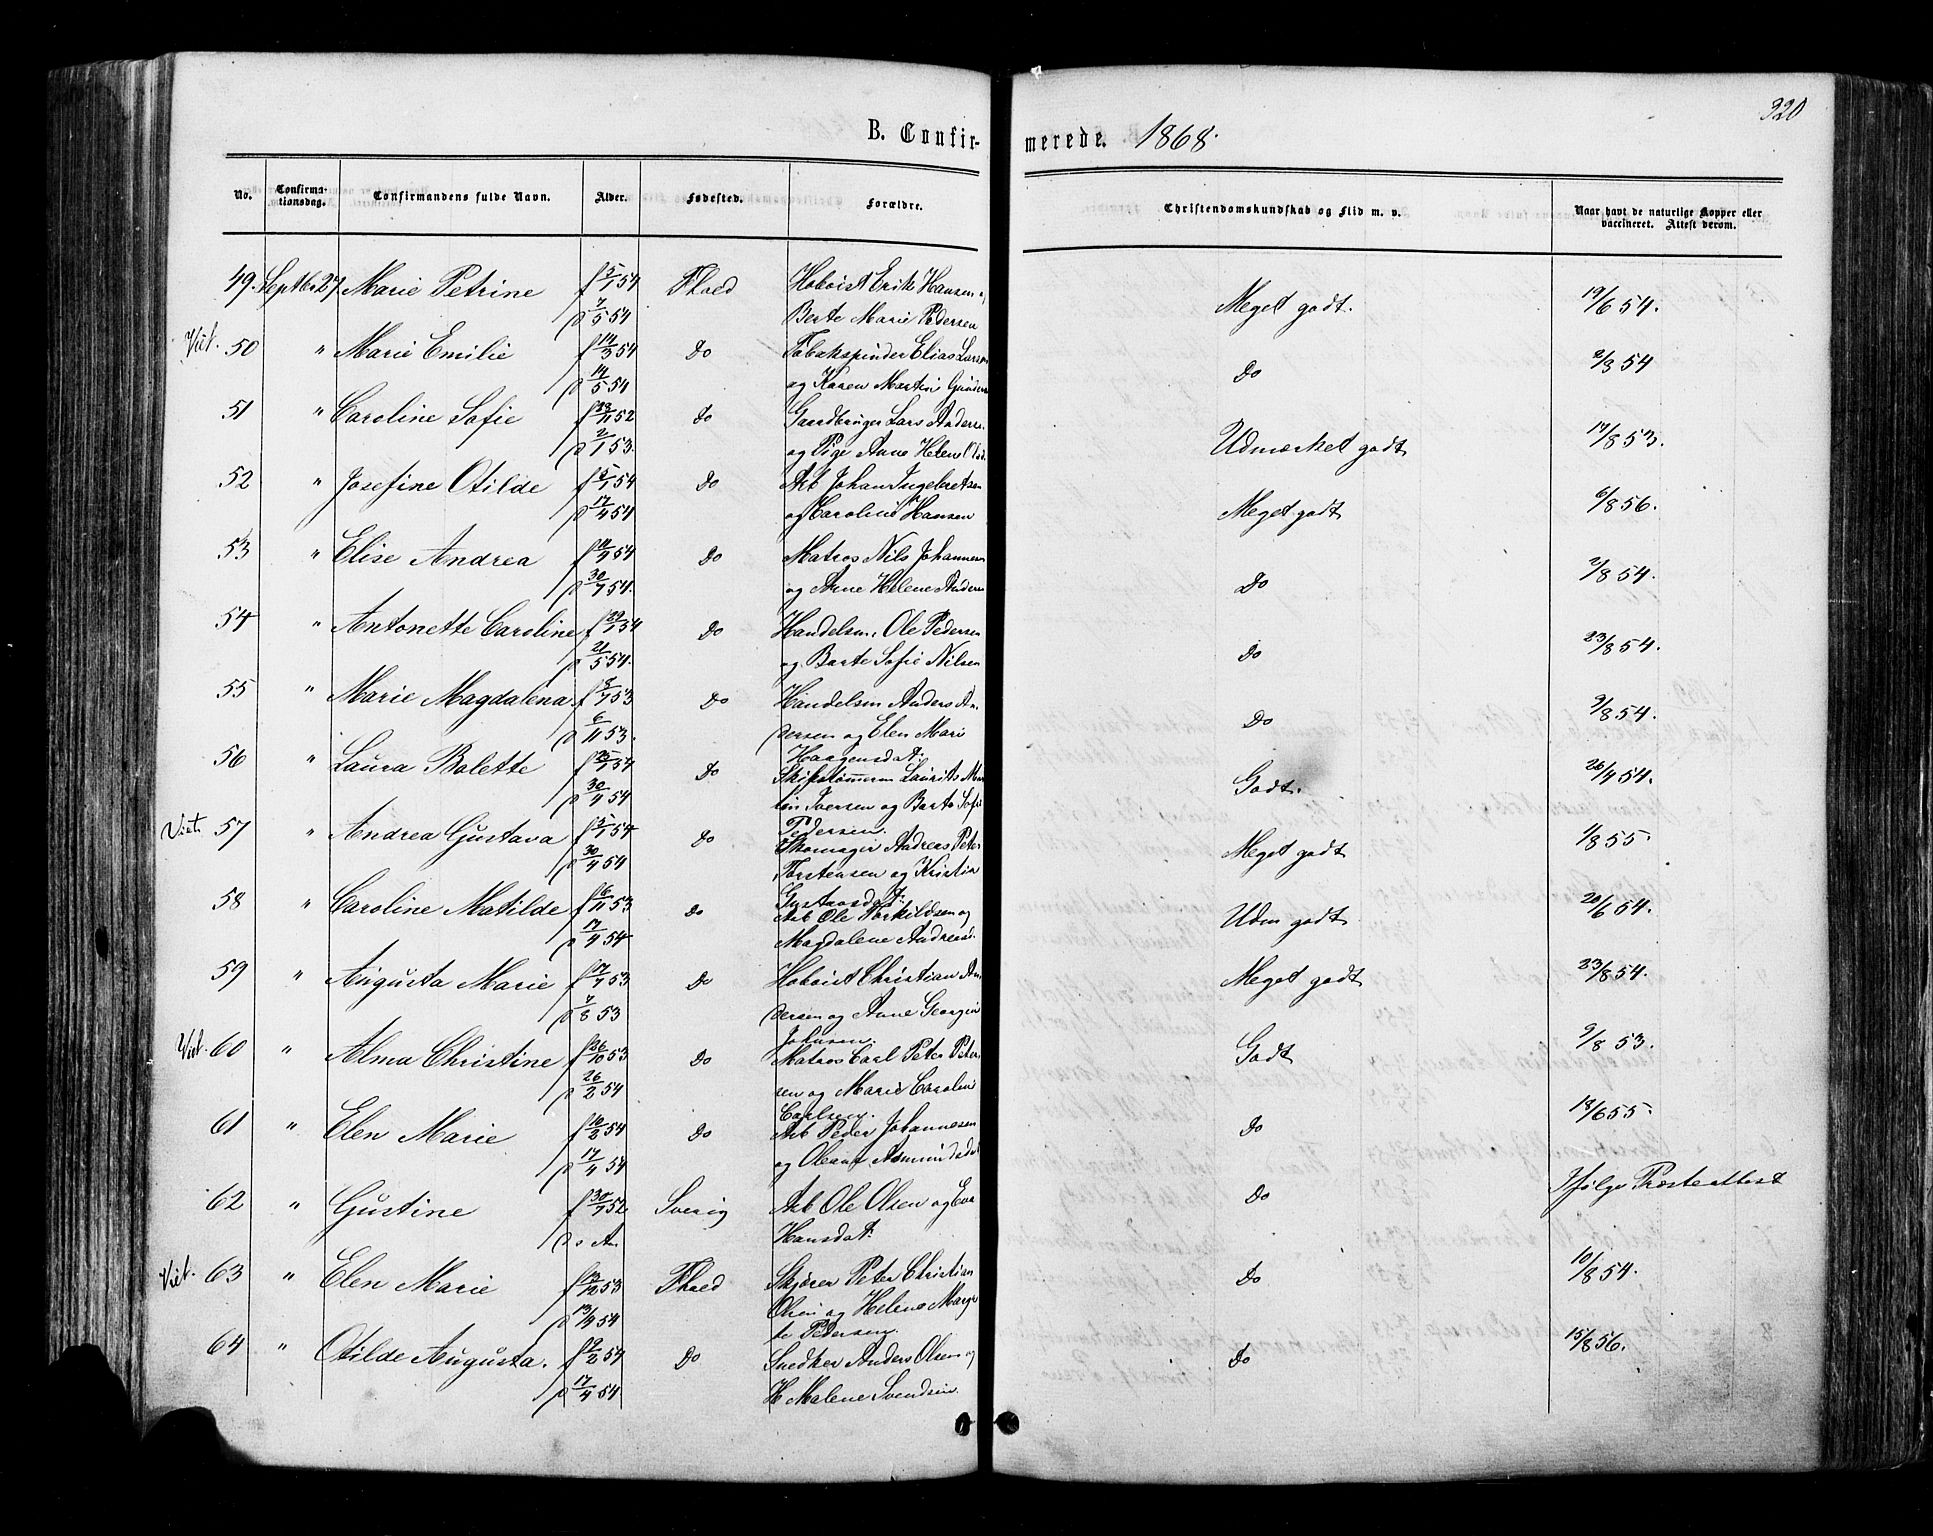 320
B. Confir- merede. 1868.
No. Confirma-tionsdag. Confirmandens fulde Navn. Alder. Fødested. Forældre. Christendomskundskab og Flid m. v. Naar havt de naturlige Kopper eller vaccineret. Attest derom.
49. Septbr 27 Marie Petrine f 5/1 54 Fhald Hoboist Erik Hansen og Meget godt. 19/6 54.
p 7/5 54 Berte Marie Pedersen
Viet. 50 " Marie Emilie f 14/3 54 Do Tobakspinder Elias Larsen Do 2/3 54
p 14/5 54 og Karen Martine
51 " Caroline Sofie 52 Do Gaardbruger Lars Anders. Udmærket godt 17/8 53.
p 2/1 53. og Pige Anne Helene
52 " Josefine Otilde 54 Do Arb Johan Ingebretsen Meget godt 6/8 56.
p 17/4 54 og Caroline Hansen
53 " Elise Andrea f 11/4 54 Do Matros Nils Johannesen Do 2/8 54.
p 30/7 54. og Anne Helene Anders
54 " Antonette Caroline f 29/1 54 Do Handelsm. Ole Pedersen Do 23/8 54.
p 21/5 54. og Barte Sofie Nilsen
55 " Marie Magdalena f 8/7 53 Do Handelsm Anders An- Do 9/8 54.
p 6/11 53. dersen og Elen Mari
Haagensdat:
56 " Laura Bolette f 25/1 54 Do Skibstømmerm Laurits Mar Godt. 26/4 54.
p 30/4 54 tin Iversen og Barte Sofie
Pedersen.
Viet. 57 " Andrea Gustava f 5/1 54 Do Skomager Andreas Peter Meget godt 1/8 55.
p 30/4 54 Torstensen og Kristia
Gustavsdat:
58 " Caroline Matilde f 6/11 53 Do Arb Ole Torkildsen og Udm godt 20/6 54.
p 17/4 54 Magdalene Andreas
59 " Augusta Marie f 17/7 53 Do Hoboist Christian An Meget godt 23/8 54.
p 7/8 53 dersen og Anne Georgin
Johnsen.
Viet. 60 " Alma Christine f 26/10 53 Do Matros Carl Peter Peter Godt 9/8 53.
p 26/2 54 sen og Marie Caroline
Carlsen.
61 " Elen Marie f 10/2 54 Do Arb Peder Johannesen Do 18/6 55.
p 17/4 54 og Oleana Asmundsdat
62 " Gustine f 30/7 52 Sverig Arb Ole Olsen og Eva Do Ifølge Præsteattest
p s. A. Hansdat:
Viet. 63 " Elen Marie f 13/12 53 Fhald Skjører Peter Christian Do 10/8 54.
p 13/4 54 Olsen og Helene Margre
te Pedersen.
64 " Otilde Augusta. 54 Do Snedker Anders Olsen og Do 15/8 56.
p 17/4 54 H Malene Svendsen